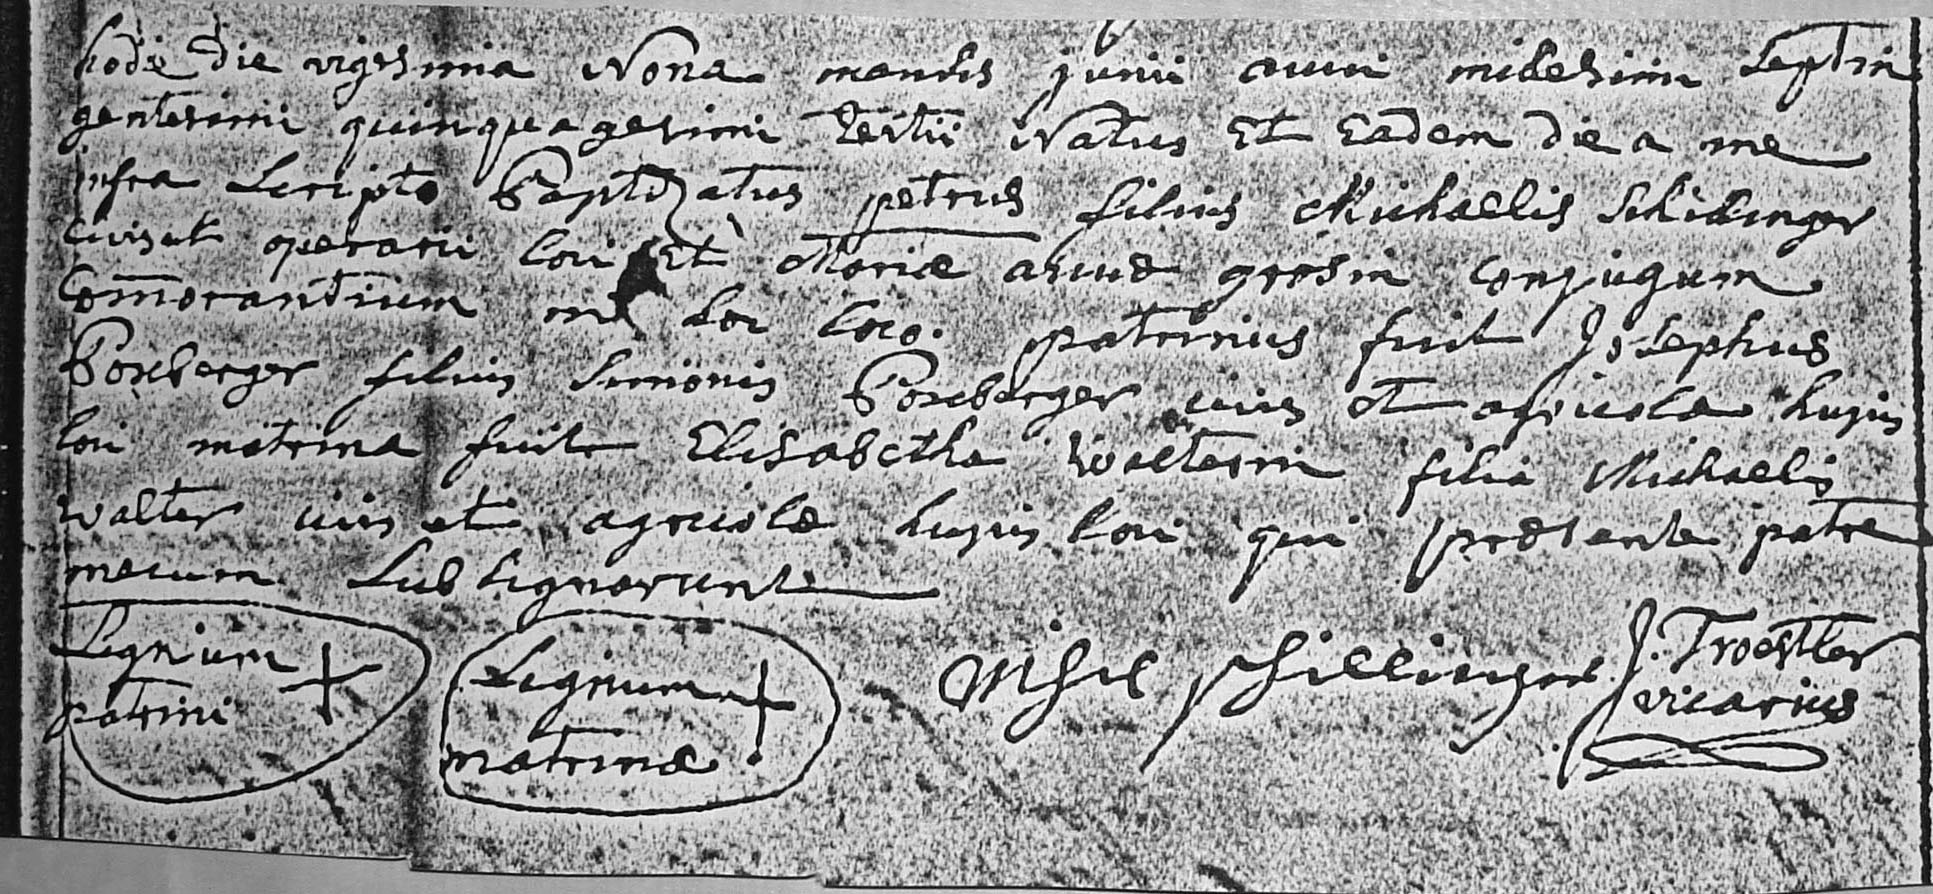 hodie die vigesima Nona mensis junii anni milesimi Septin
gentesimi quinquagesimi tertii Natus Et Eadem die a me
infra Scripto Baptizatus petrus filius Michaelis Schillinger
civis et operarii loci Et Mariæ annæ grosin conjugum
Comorantium in hoc loco. patrinus fuit Josephus
Boxberger filius Simonis Boxberger civis et agricolæ hujus
loci matrina fuit Elisabetha Walterin filia Michaelis
Walter civis et agricolæ hujus loci qui præsente patre
mecum Subsignarunt
Signum
patrini
Signum
matrinæ
Michel Schillinger
J. Troestler
vicarius